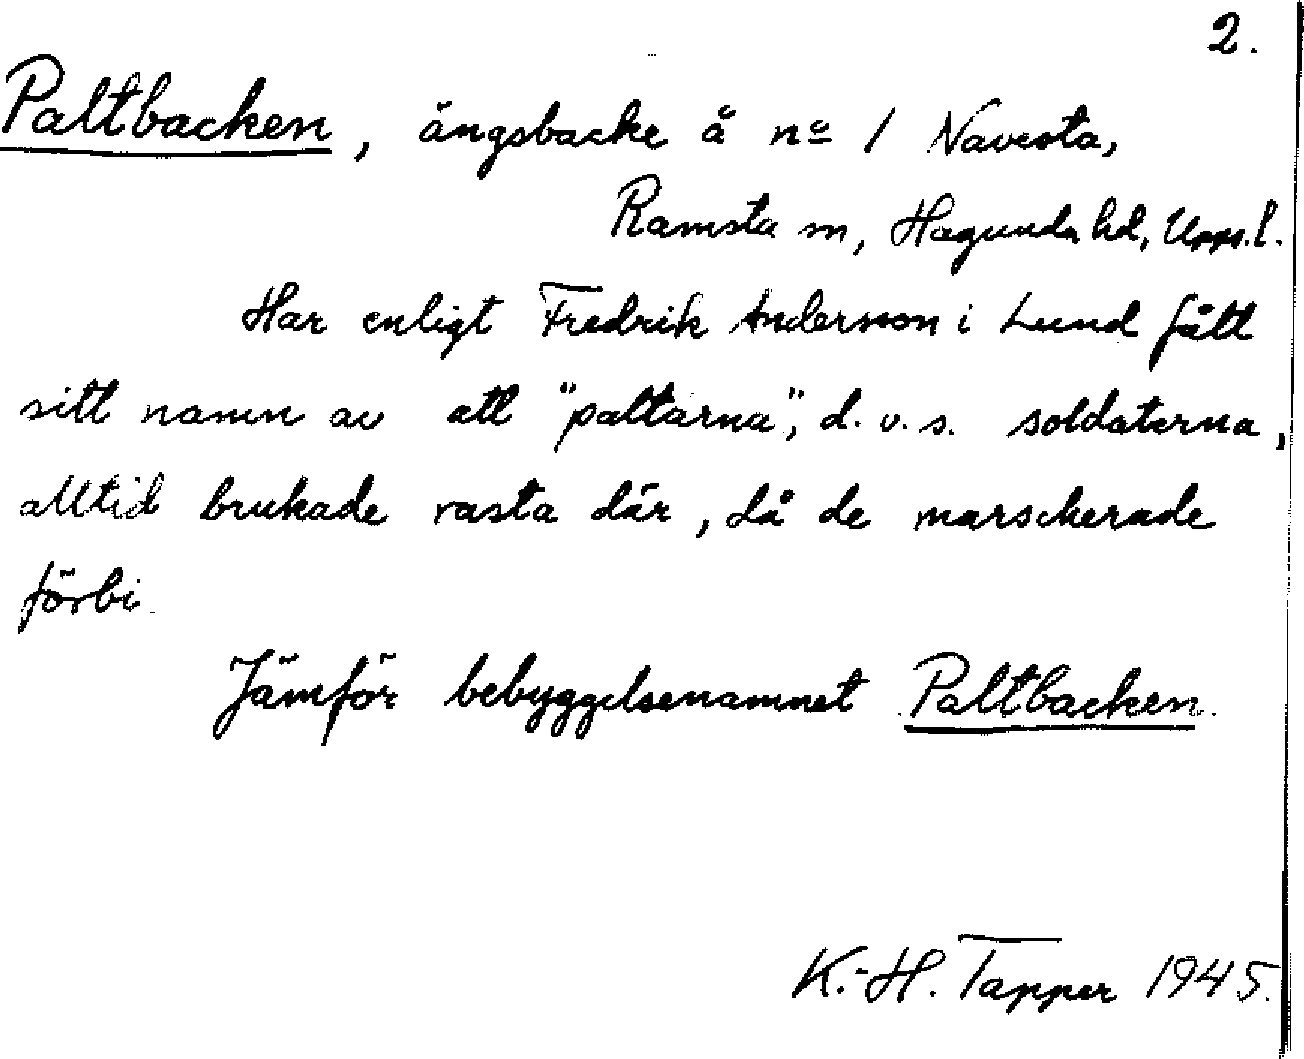 2.
Paltbacken, ängsbacke å nº 1 Navesta,
Ramsta sn, Hagunda hd, Uppl.
Har enligt Fredrik Andersson i Lund fått
sitt namn av att "paltarna", d. v. s. soldaterna,
alltid brukade rasta där, då de marscherade
förbi.
Jämför bebyggelsenamnet Paltbacken.
K.-H. Tapper 1945.